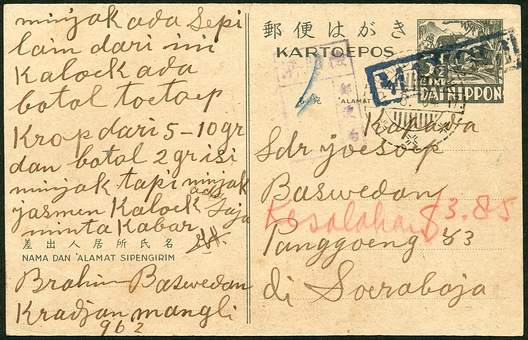 minjak ada Sepi
lain dari ini
Kaloek ada
botol toetoep
Krop dari 5-10 gr
dan botol 2 gr isi
minjak tapi minjak
jasmen Kalock ada Saja
minta Kabar
差出人居所氏名
NAMA DAN 'ALAMAT SIPENGIRIM
Brahim Baswedan
Kradjan mangli
962
郵便はがき
KARTOEPOS
宛 'ALAMAT
DAI NIPPON
Kapada
Sdr joesoep
Baswedan
Kesalahan 83.85
Panggoeng 83
di Soerabaja